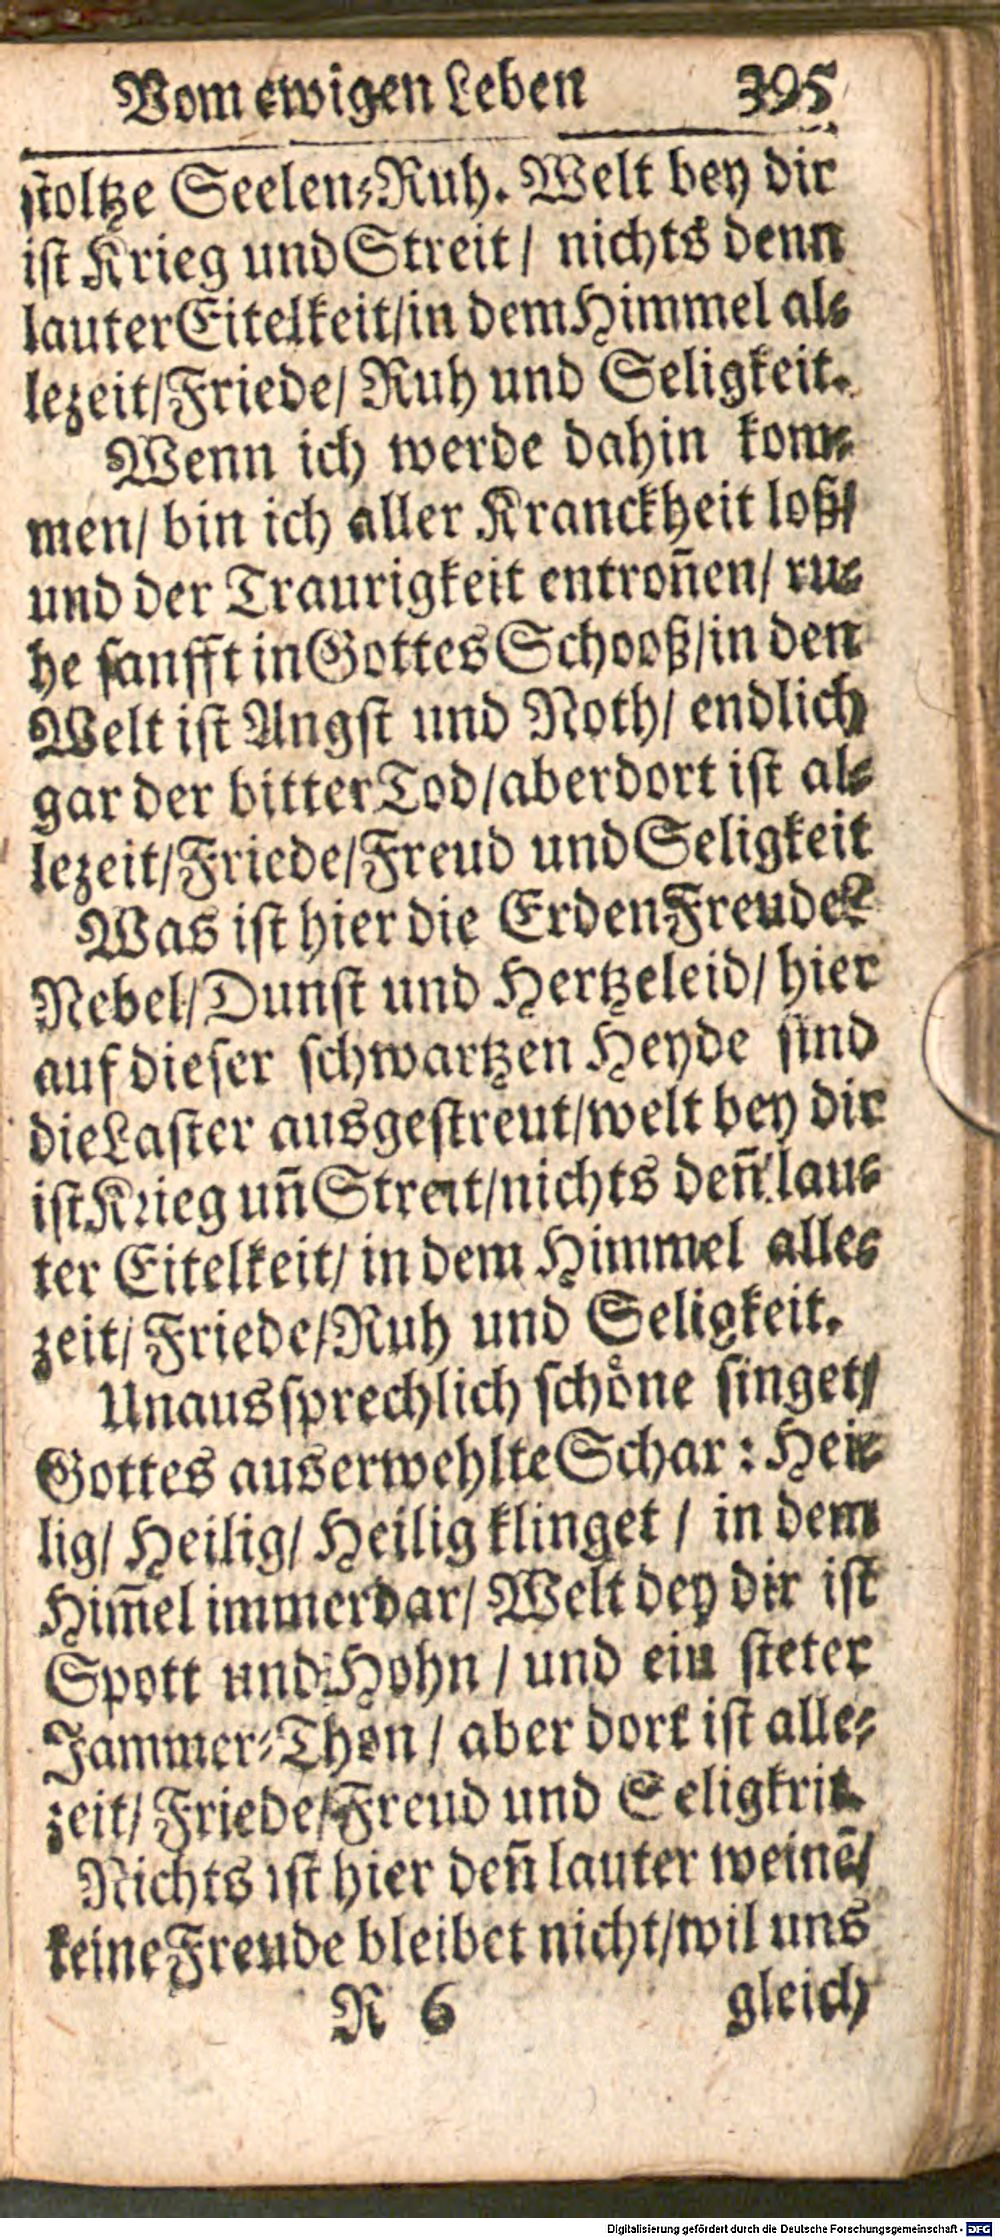 Vom ewigen Leben 395
stoltze Seelen-Ruh. Welt bey dir
ist Krieg und Streit / nichts denn
lauter Eitelkeit/in dem Himmel al-
lezeit/Friede/ Ruh und Seligkeit.
Wenn ich werde dahin kom-
men/ bin ich aller Kranckheit loß/
und der Traurigkeit entron̄en/ ru-
he sanfft in Gottes Schooß/in den
Welt ist Angst und Noth/ endlich
gar der bitter Tod/aber dort ist al-
lezeit/Friede/Freud und Seligkeit
Was ist hier die Erden Freude?
Nebel/Dunst und Hertzeleid/ hier
auf dieser schwartzen Heyde sind
die Laster ausgestreut/welt bey dir
ist Krieg un̄ Streit/nichts den̄ lau-
ter Eitelkeit/ in dem Himmel alle-
zeit/ Friede/Ruh und Seligkeit.
Unaussprechlich schöne singet/
Gottes auserwehlte Schar: Hei-
lig/ Heilig/ Heilig klinget / in dem
Him̄el immerdar/ Welt dey dir ist
Spott und Hohn / und ein steter
Jammer-Thon / aber dort ist alle-
zeit/ Friede/Freud und Seligkrit.
Nichts ist hier den̄ lauter weinē/
keine Freude bleibet nicht/wil uns
R 6 gleich
Digitalisierung gefördert durch die Deutsche Forschungsgemeinschaft - DFG